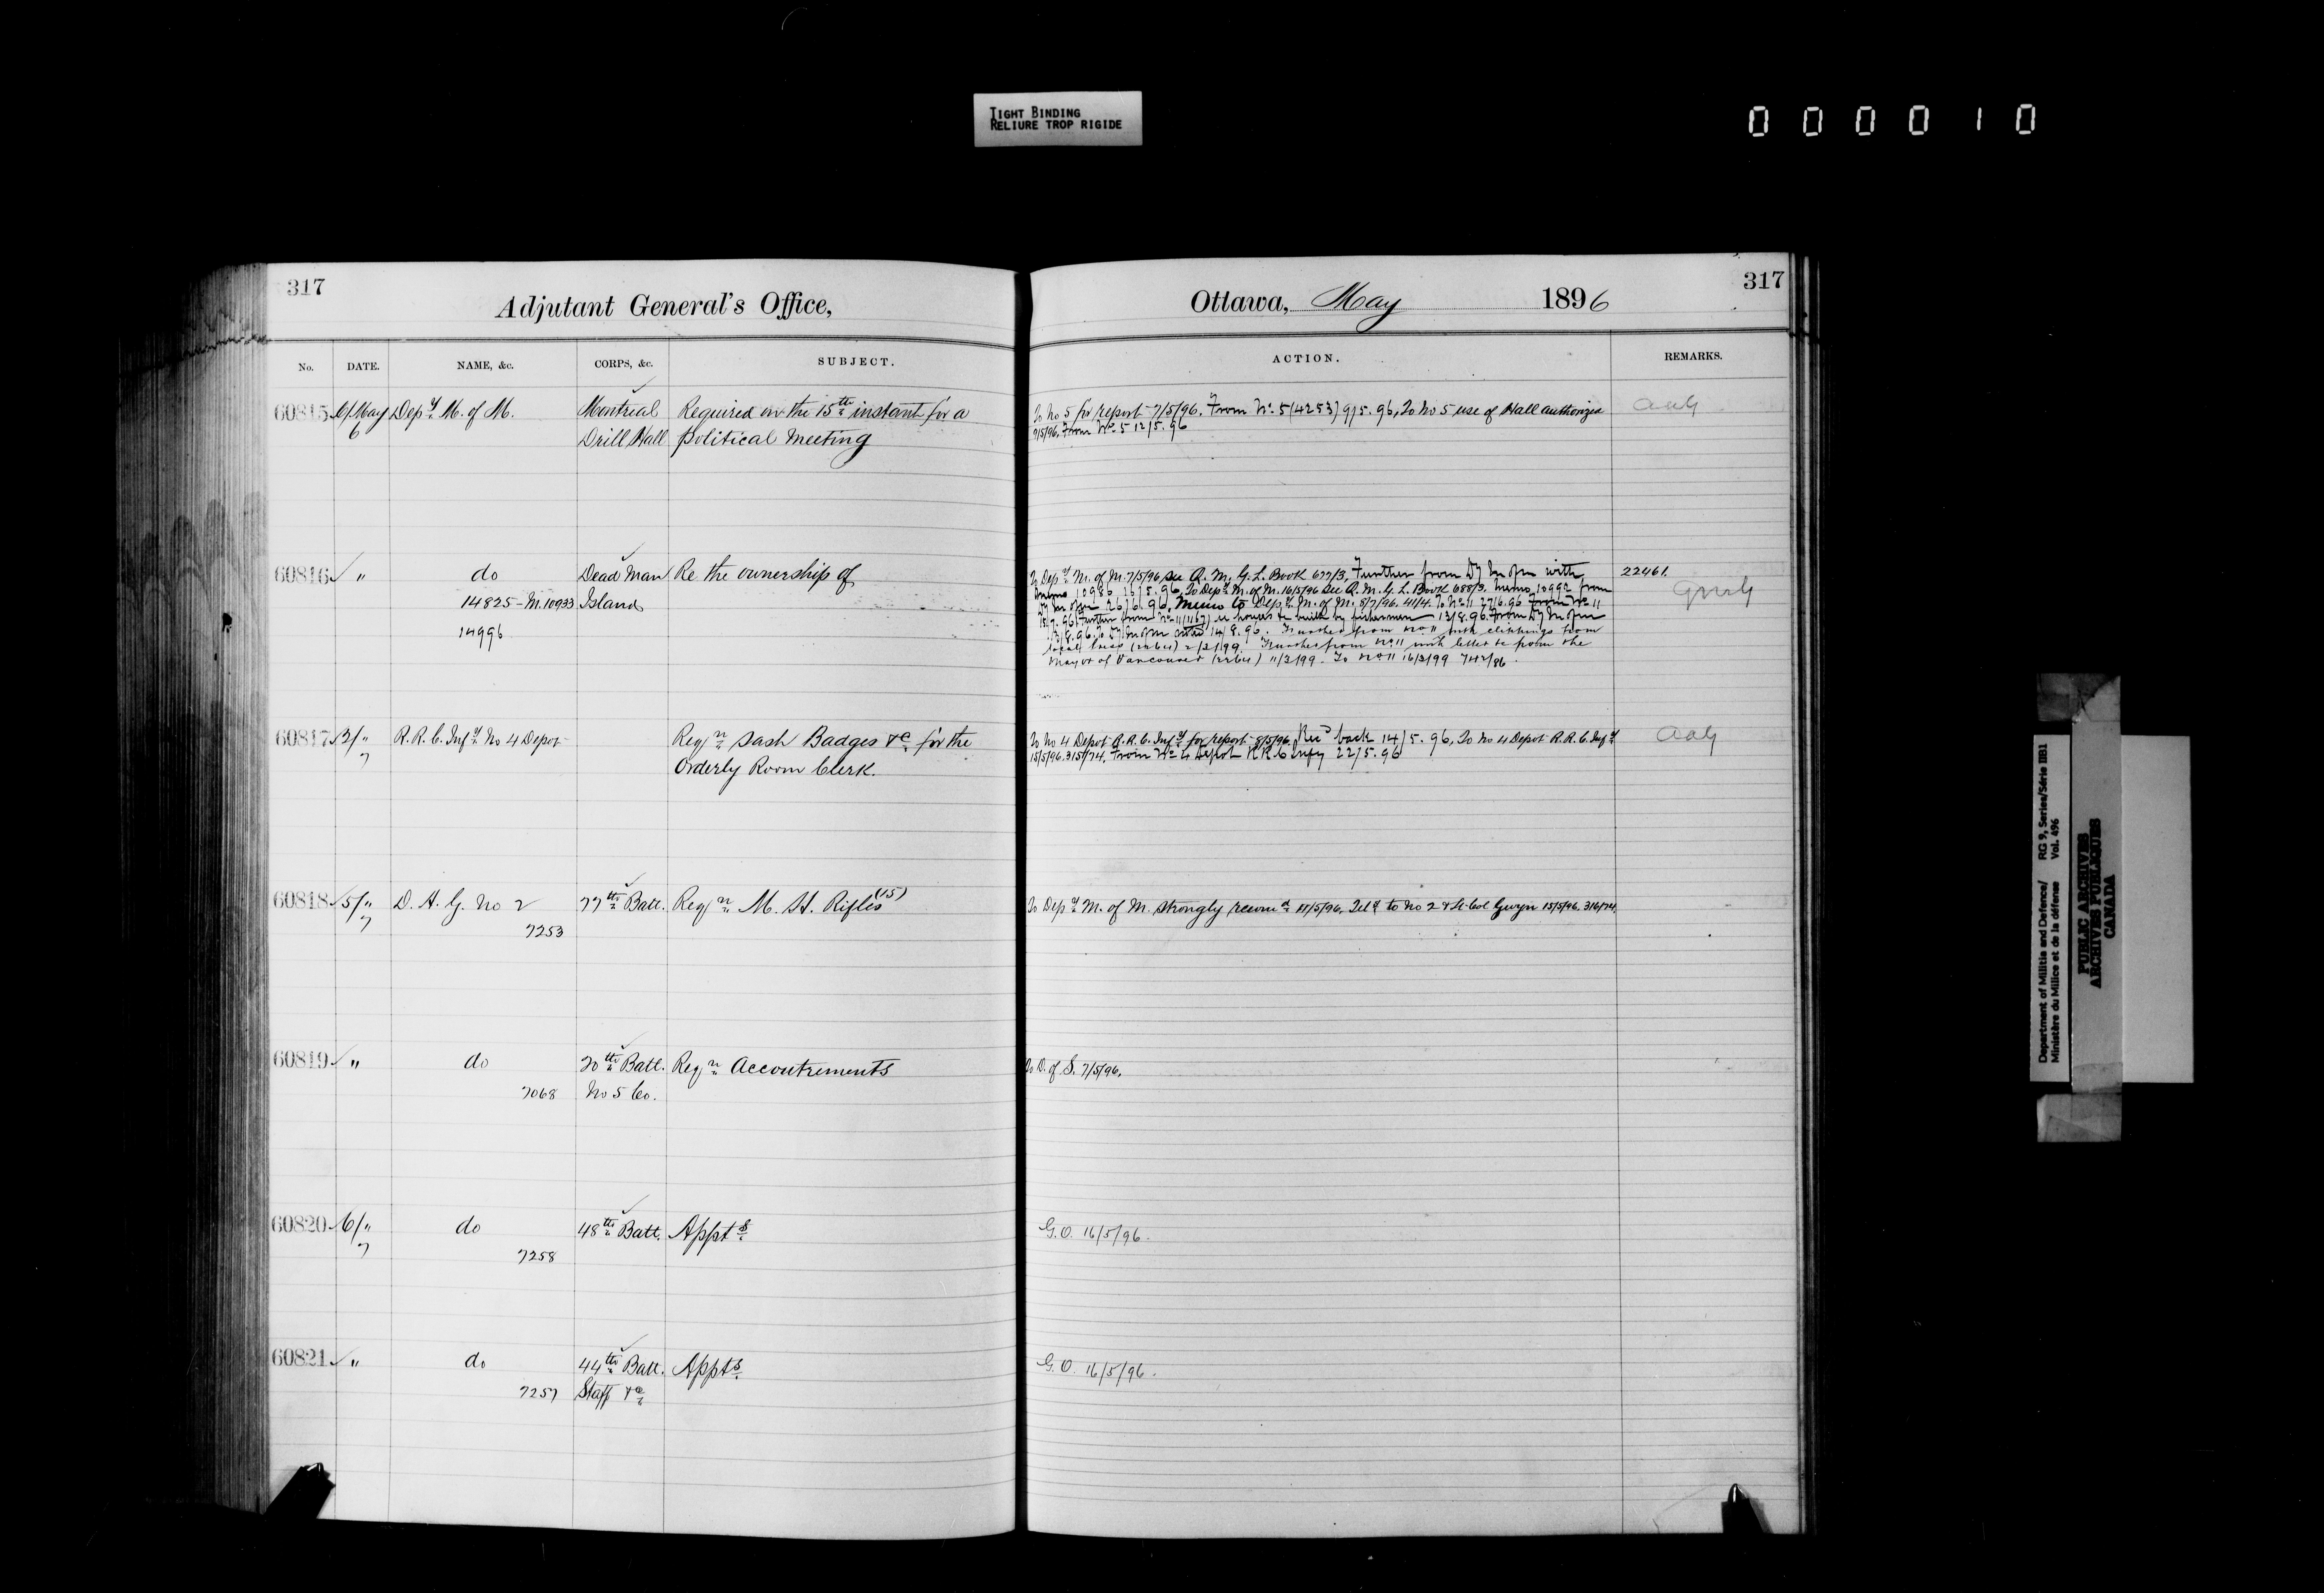 TIGHT BINDING
RELIURE TROP RIGIDE
000010
317
Adjutant General's Office,
Ottawa, May 1896
317
No. DATE. NAME, &c. CORPS, &c. SUBJECT. ACTION. REMARKS.
60815 6/May Dep.y M. of M. Montreal Required on the 15th instant for a To No 5 for report 7/5/96. From No. 5 (4253) 9/5.96, To No 5 use of Hall authorized AaG
6 Drill Hall political meeting 9/5/96. From No. 5 12/5.96
60816 " do Dead Man Re the ownership of To Dep.y M. of M. 7/5/96 see Q. M. G. L. Book 677/3. Further from Dy M of M with 22461.
14825-M.10933 Island memo 10986 16/5.96. To Dep.y M. of M. 16/5/96 see Q. M. G. L. Book 688/3. memo 10992 from QMG
14996 Dy M of M 26/6.96. Memo to Dep.y M. of M. 8/7/96. 41/4. To No. 11 27/6.96 From No. 11
Further from No. 11 (1167) re houses built by fishermen 13/8.96. From Dy M of M
13/8.96. To Dy M of M 14/8.96. Further from No. 11 with clippings from
local 2/2/99. Further from No. 11 with letter from the
Mayor of Vancouver 11/2/99. To No. 11 16/2/99 742/86.
60817 3/" R. R. C. Inf.y No 4 Depot Reqn. Sash Badges &c for the To No 4 Depot R. R. C. Inf.y for report 8/5/96. Rec'd back 14/5.96, To No 4 Depot R. R. C. Inf.y AaG
7 Orderly Room Clerk. 15/5/96. 315/74. From No. 4 Depot R R. C Infy 22/5.96
60818 5/" D. A. G. No 2 77th Batt. Reqn. M. H. Rifles (15) To Dep.y M. of M. strongly recomd. /5/96. Tel.g to No 2 & Lt-Col Gwyn 15/5/96. 316/74.
7 7253
60819 " do 20th Batt. Reqn. Accoutrements To D. of S. 7/5/96.
7068 No 5 Co.
60820 6/" do 48th Batt. Appts. G.O. 16/5/96.
7 7258
60821 " do 44th Batt. Appts. G.O. 16/5/96.
7257 Staff &c
Department of Militia and Defence/ RG 9, Series/Série IIB1
Ministère du Milice et de la défense Vol. 496
PUBLIC ARCHIVES
ARCHIVES PUBLIQUES
CANADA